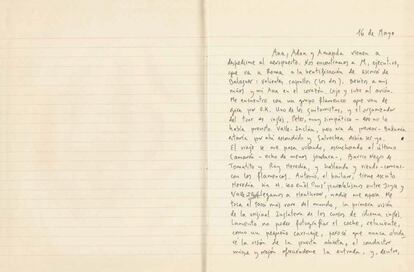 16 de Mayo
Ana, Adan y Amanda vienen a
despedirme al aeropuerto. Nos encontramos a M, ejecutivo,
que va a Roma, a la beatificación de escrivá de
Balaguer: valientes capullos (los dos). Besitos a mis
niños y mi Ana en el corazón. Cojo y subo al avión.
Me encuentro con un grupo flamenco que van de
gira por U.K. Uno de los guitarristas, y el organizador
del tour es inglés. Peter, muy simpático - eso no lo
había previsto Valle-Inclán, pero era de prever-
estaría por ahí escondido y
El viaje se me pasa volando, escuchando el último
Camarón - echo de menos guitarra, Barrio Negro de
Tomatito y Ray Heredia, y hablando y riendo
con los flamencos. Antonio, el bailaor, tiene acento
Heredia, paralelismo entre Jorge y
Valle llegamos a Heathrow, nadie me espera. Me
toca el taxi más raro del mundo, la primera visión
de la original Inglaterra de los cursos de idioma inglés.
Lamento no poder fotografiar el coche, reluciente,
como un pequeño carruaje, parece que nunca olvida
la visión de la puerta abierta, el conductor
viejo y mejor ofreciéndome la entrada, y, dentro,